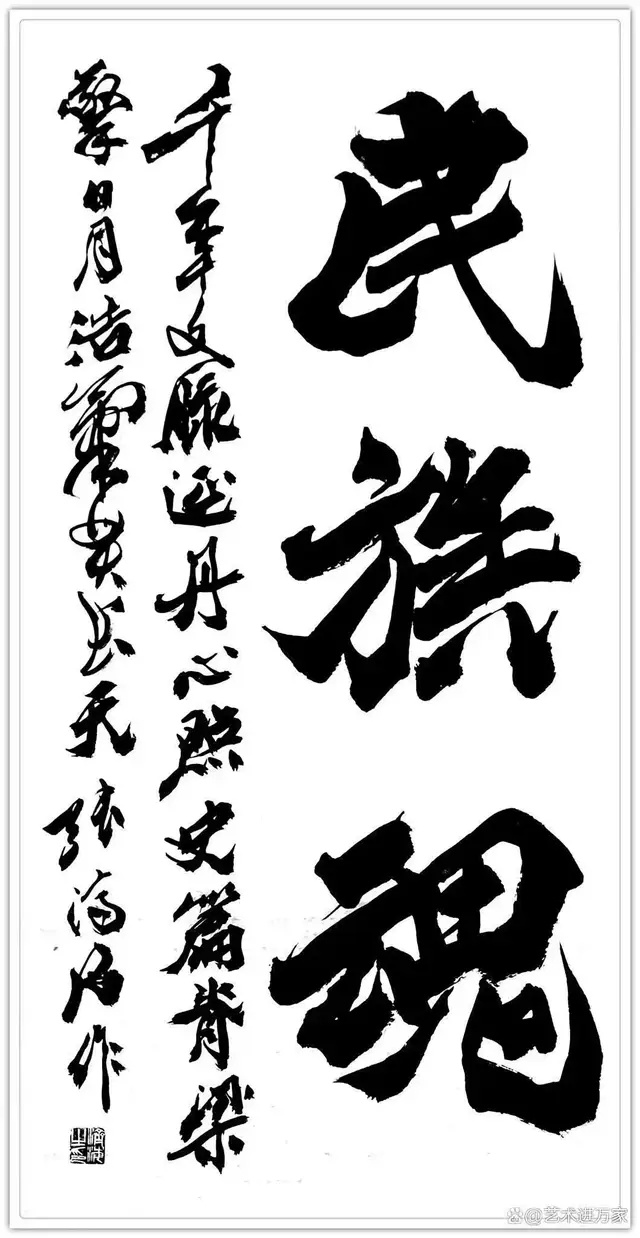 民族魂
千年文脉延丹心照史篇脊梁
擎日月浩气贯长天 张济海作
@艺术进万家